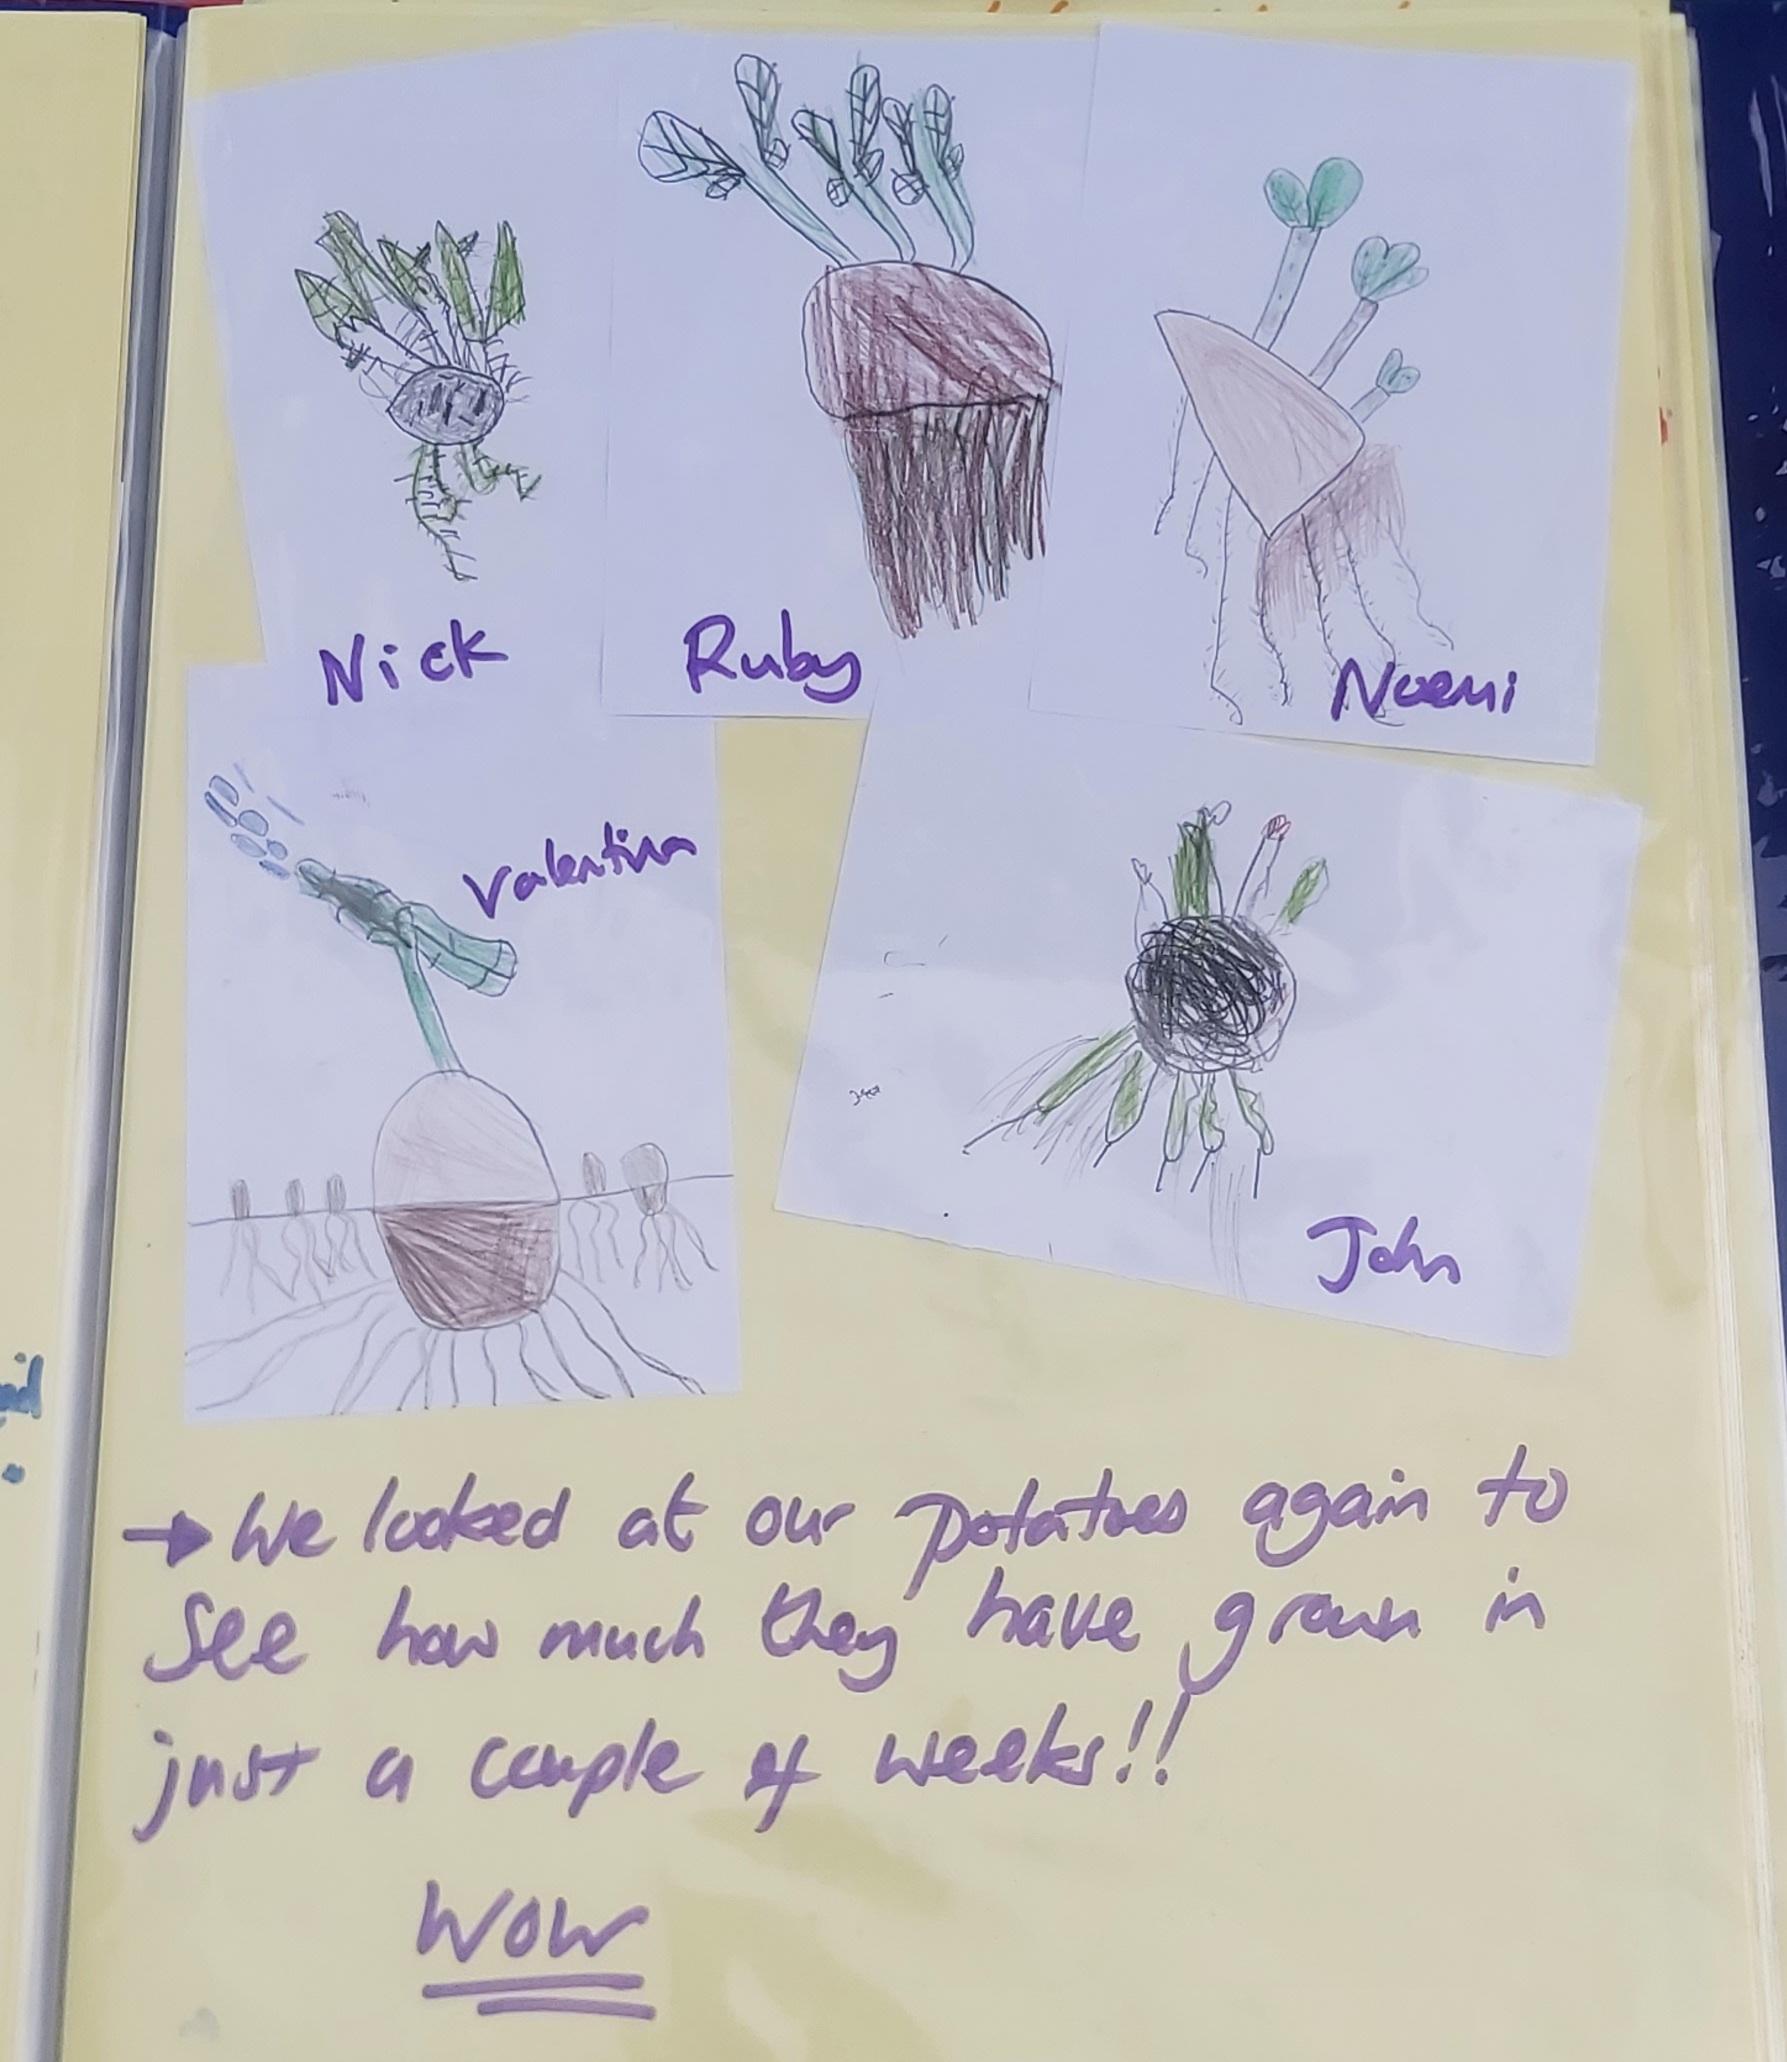 Nick Ruby Noemi
Valentina
John
→ We looked at our potatoes again to
see how much they have grown in
just a couple of weeks!!
WOW